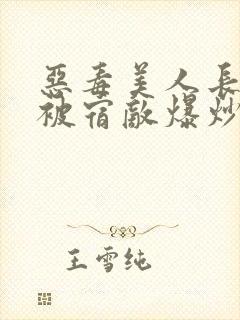 惡毒美人長
被宿敵爆炒
王雪纯